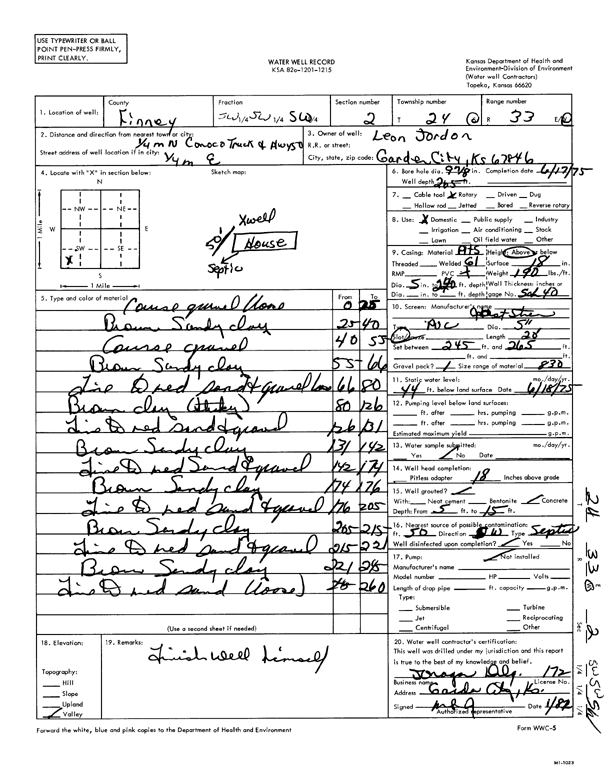 USE TYPEWRITER OR BALL
POINT PEN-PRESS FIRMLY,
PRINT CLEARLY.
WATER WELL RECORD
KSA 82a-1201-1215
Kansas Department of Health and
Environment-Division of Environment
(Water well Contractors)
Topeka, Kansas 66620
1. Location of well: County Finney Fraction SW 1/4 SW 1/4 SW 1/4 Section number 2 Township number T 24 S Range number R 33 E/W
2. Distance and direction from nearest town or city: 1/4 m N Conoco Truck & Hwy 50
Street address of well location if in city: 1/4 m E
3. Owner of well: Leon Jordon
R.R. or street:
City, state, zip code: Garden City, Ks 67846
4. Locate with "X" in section below:
Sketch map:
N
NW NE
W E
SW SE
X
S
1 Mile
1 Mile
X well
50
House
Septic
6. Bore hole dia. 9 7/8 in. Completion date 6/17/75
Well depth 265 ft.
7. Cable tool X Rotary Driven Dug
Hollow rod Jetted Bored Reverse rotary
8. Use: X Domestic Public supply Industry
Irrigation Air conditioning Stock
Lawn Oil field water Other
9. Casing: Material Height: Above or below
Threaded Welded Gl Surface 18 in.
RMP PVC X Weight 190 lbs./ft.
Dia. 5 in. to 240 ft. depth Wall Thickness: inches or
Dia. in. to ft. depth gage No. Sch 40
5. Type and color of material From To
Course gravel loose 0 25
Brown Sandy clay 25 40
Course gravel 40 55
Brown Sandy clay 55 66
Fine to med sand & gravel loose 66 80
Brown clay (Sticky) 80 126
Fine to med sand & gravel 126 131
Brown Sandy clay 131 142
Fine to med Sand & gravel 142 174
Brown Sandy clay 174 176
Fine to med sand & gravel 176 205
Brown Sandy clay 205 215
Fine to med sand & gravel 215 221
Brown Sandy clay 221 228
Fine to med sand (loose) 260
(Use a second sheet if needed)
10. Screen: Manufacturer's name
Type PVC Dia. 5"
Slot/gauze Length 20
Set between 245 ft. and 265 ft.
ft. and ft.
Gravel pack? Size range of material 830
11. Static water level: mo./day/yr.
44 ft. below land surface Date 6/18/75
12. Pumping level below land surface:
ft. after hrs. pumping g.p.m.
ft. after hrs. pumping g.p.m.
Estimated maximum yield g.p.m.
13. Water sample submitted: mo./day/yr.
Yes No Date
14. Well head completion:
Pitless adapter 18 Inches above grade
15. Well grouted?
With: Neat cement Bentonite Concrete
Depth: From 5 ft. to 15 ft.
16. Nearest source of possible contamination:
ft. 50 Direction SW Type Septic
Well disinfected upon completion? Yes No
17. Pump: Not installed
Manufacturer's name
Model number HP Volts
Length of drop pipe ft. capacity g.p.m.
Type:
Submersible Turbine
Jet Reciprocating
Centrifugal Other
18. Elevation:
Topography:
Hill
Slope
Upland
Valley
19. Remarks:
Finish well himself
20. Water well contractor's certification:
This well was drilled under my jurisdiction and this report
is true to the best of my knowledge and belief.
Dlg. 172
Business name License No.
Address Garden City, Ks.
Signed Date 1/82
Authorized representative
T 24
R 33 E W
Sec 2
SW SW SW
1/4 1/4 1/4
Forward the white, blue and pink copies to the Department of Health and Environment
Form WWC-5